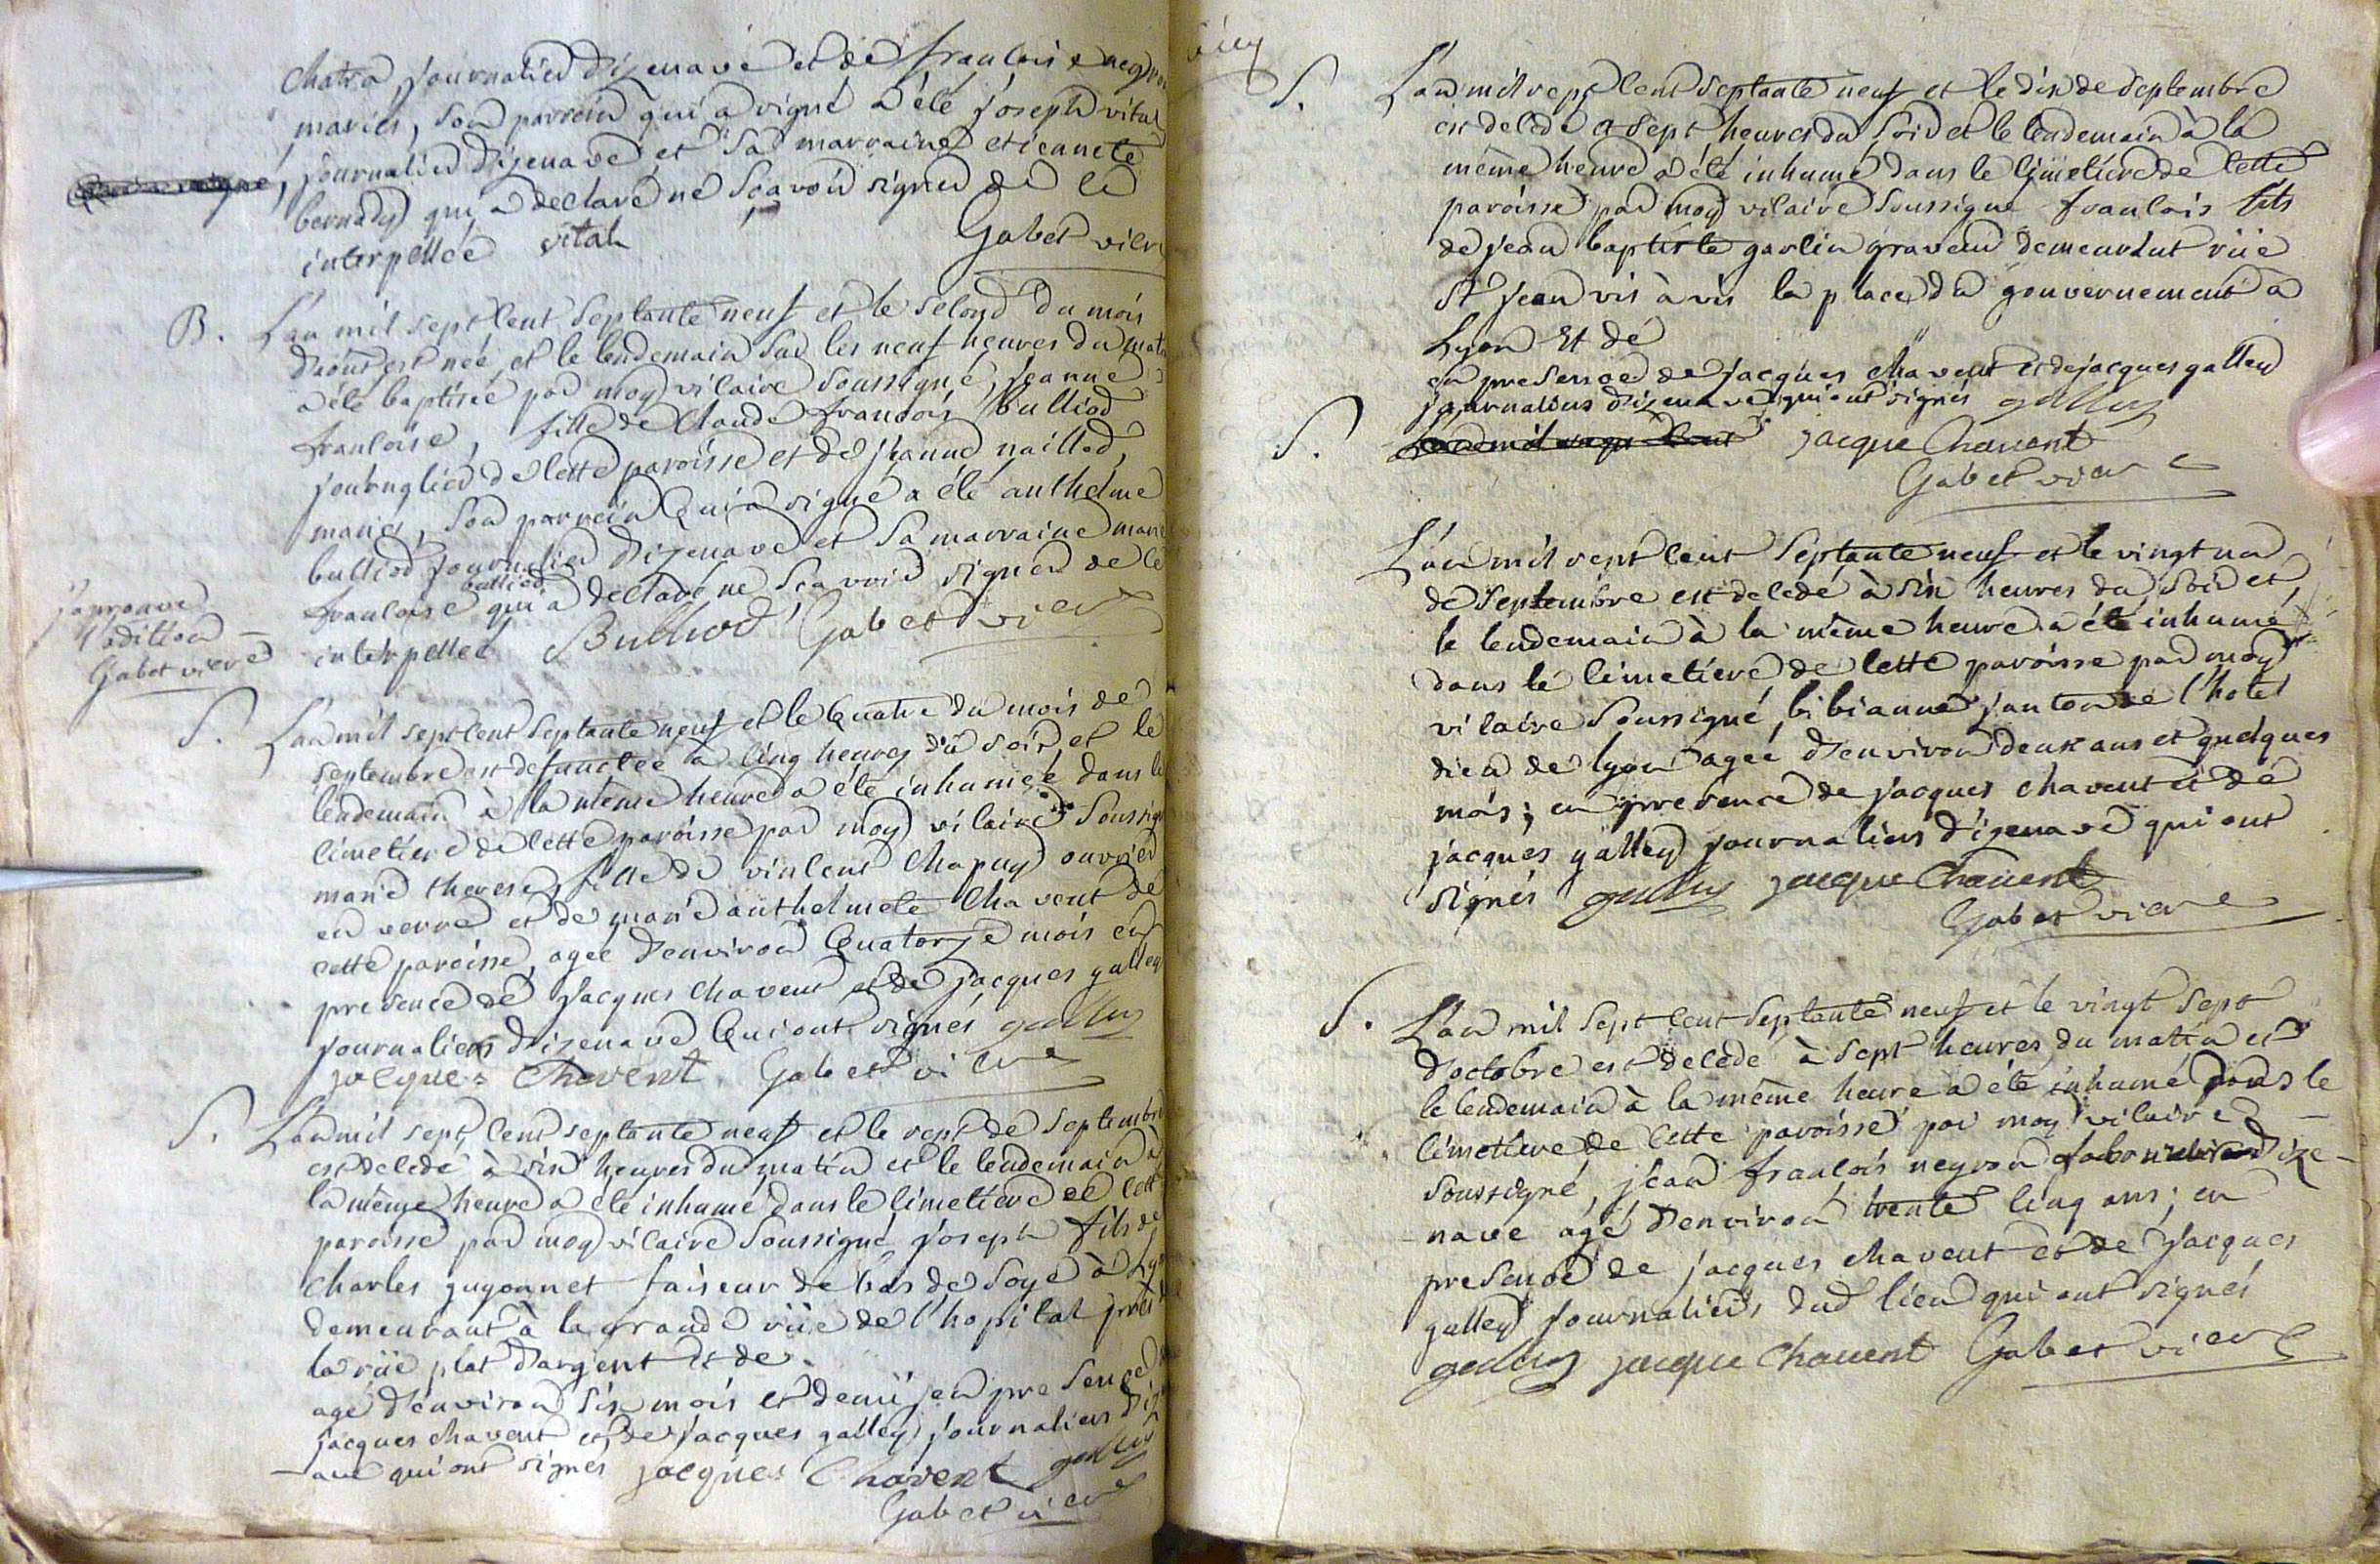 chatra journalier d'izenave et de francoise neyron
mariés, son parrein qui a signé a été joseph vital
journalier d'izenave et sa marraine etiennete
bernady qui a declaré ne scavoir signer de ce
interpellée vital Gabet vicre
B. L'an mil sept cent septante neuf et le second du mois
d'aoust est née, et le lendemain sur les neuf heures du matin
a été baptisée par moy vicaire soussigné, jeanne
francoise, fille de claude francois bulliod
journalier de cette paroisse et de jeanne naillod,
mariés, son parrein qui a signé a été anthelme
bulliod journalier d'izenave et sa marraine marie
bulliod
francoise qui a declaré ne scavoir signer de ce
interpellée Bulliod Gabet vicre
j'aprouve
l'adition
Gabet vicre
S. L'an mil sept cent septante neuf et le quatre du mois de
septembre est defunctée a cinq heures du soir et le
lendemain à la même heure a été inhumée dans le
cimetiere de cette paroisse par moy vicaire soussigné
marie therese, fille de vincent chapuy ouvrier
en verre et de marie anthelmete chavent de
cette paroisse, agée d'environ quatorze mois en
presence de jacques chavent et de jacques galley
journaliers d'izenave qui ont signés galley
jacques chavent Gabet vicre
S. L'an mil sept cent septante neuf et le sept de septembre
est decedé à six heures du matin et le lendemain à
la même heure a été inhumé dans le cimetiere de cette
paroisse par moy vicaire soussigné joseph fils de
charles guyonnet faiseur de bas de soye à Lyon
demeurant à la grande rüe de l'hopital près
la rüe plat d'argent et de
agé d'environ six mois et demi, en presence de
jacques chavent et de jacques galley journaliers d'izen
-ave qui ont signés jacques Chavent galley
Gabet vicre
S. L'an mil sept cent septante neuf et le dix de septembre
est decedé a sept heures du soir et le lendemain à la
même heure a été inhumé dans le cimetiere de cette
paroisse par moy vicaire soussigné francois fils
de jean baptiste garlin graveur demeurant rüe
St jean vis à vis la place du gouvernement a
Lyon Et de
en presence de jacques chavent et de jacques galley
journaliers d'izenave qui ont signés galley
S. L'an mil sept cent jacque Chavent
Gabet vicre
L'an mil sept cent septante neuf et le vingt un
de septembre est decedé à six heures du soir et
le lendemain à la même heure a été inhumé
dans le cimetiere de cette paroisse par moy
vicaire soussigné, bibianne janton de l'hotel
dieu de lyon agée d'environ deux ans et quelques
mois; en presence de jacques chavent et de
jacques galley journaliers d'izenave qui ont
signés galley jacque Chavent
Gabet vicre
S. L'an mil sept cent septante neuf et le vingt sept
d'octobre est decedé à sept heures du matin et
le lendemain à la même heure a été inhumé dans le
cimetiere de cette paroisse par moy vicaire
soussigné, jean francois neyron d'ize-
nave agé d'environ trente cinq ans; en
presence de jacques chavent et de jacques
galley journaliers dud lieu qui ont signés
galley jacque Chavent Gabet vicre